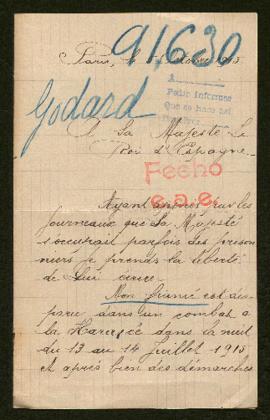 91,630
Paris,
Godard
Pedir informes
Que se haga
A Sa Majesté Le
Roi d'Espagne
Fecho
e.a.e.
Ayant entendu les
journeaux que Sa Majesté
s'occupait parfois des prison
niers je prends la liberté
de Lui écrire.
Mon fiancé est dis-
paru dans un combat à
la Harazée dans la nuit
du 13 au 14 Juillet 1915
et après bien des démarches